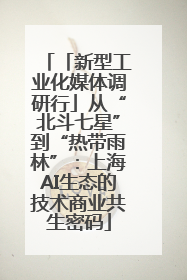 「「新型工
业化媒体调
研行」从“
北斗七星”
到“热带雨
林”：上海
AI生态的
技术商业共
生密码」